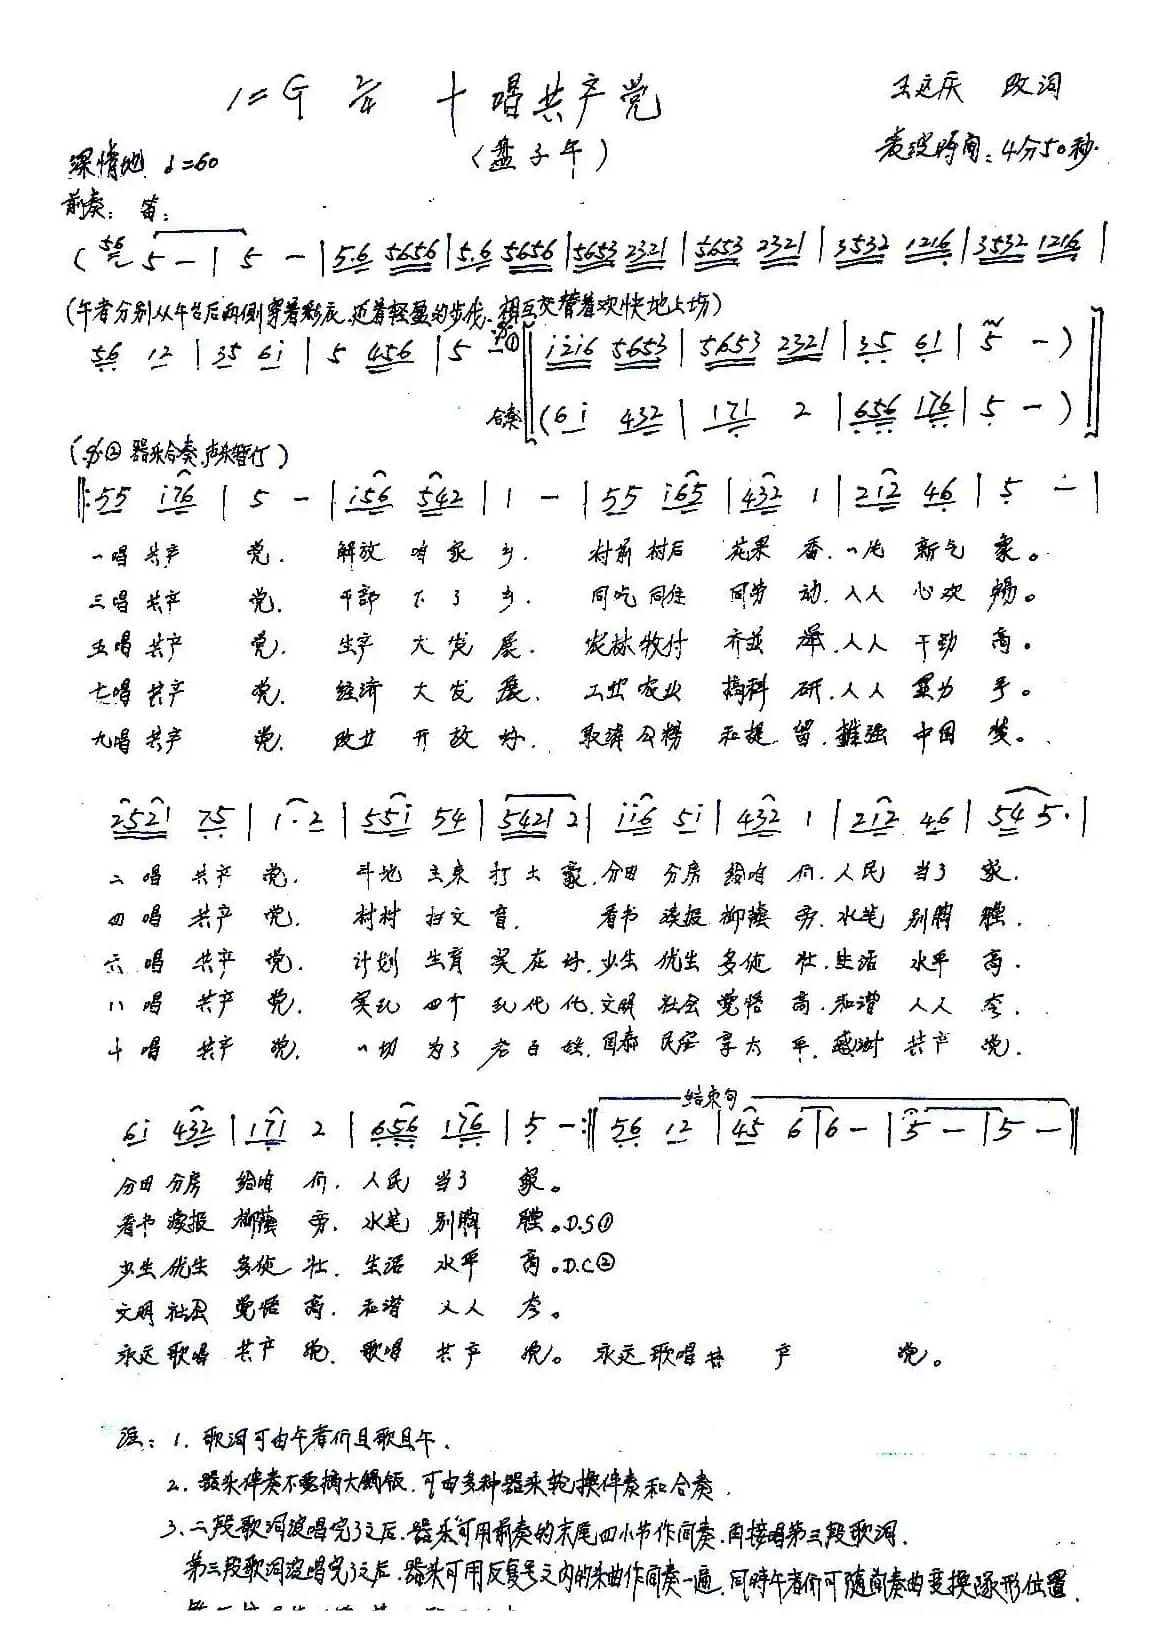 1=G 2/4 十唱共产党 王远庆 改词
(盘子午)
深情地 ♩=60 表演时间:4分50秒.
前奏: 笛:
(56 5 - | 5 - | 5.6 5656 | 5.6 5656 | 5653 2321 | 5653 2321 | 3532 1216 | 3532 1216 |
(午者分别从午台后两侧穿着彩衣.迈着轻盈的步伐.相互交替着欢快地上场)
56 12 | 35 6i | 5 456 | 5 - 𝄋① i2i6 5653 | 5653 2321 | 35 61 | 5 - )
合奏 (6i 432 | 171 2 | 656 176 | 5 - )
(𝄋② 器乐合奏,声乐暂停)
‖: 55 i76 | 5 - | i56 542 | 1 - | 55 i65 | 432 1 | 212 46 | 5 - |
一唱共产 党. 解放 咱家 乡. 村前村后 花果 香.一片 新气 象。
三唱共产 党. 干部 下了 乡. 同吃同住 同劳 动.人人 心欢 畅。
五唱共产 党. 生产 大发 展. 农林牧付 齐並 举.人人 干劲 高。
七唱共产 党. 经济 大发 展. 工业农业 搞科 研.人人 显力 手。
九唱共产 党. 改廾 开放 好. 取消公粮 和提 留. 中国 梦。
2521 75 | 1.2 | 55i 54 | 5421 2 | ii6 5i | 432 1 | 212 46 | 54 5. |
二唱 共产 党. 斗地 主来 打土 豪.分田 分房 给咱 们.人民 当了 家.
四唱 共产 党. 村村 扫文 盲. 看书 读报 柳荫 旁.水笔 别胸 膛.
六唱 共产 党. 计划 生育 实在 好.少生 优生 多健 壮.生活 水平 高.
八唱 共产 党. 实现 四个 现代 化.文明 社会 觉悟 高.和谐 人人 夸.
十唱 共产 党. 一切 为了 老百 姓.国泰 民安 享太 平.感谢 共产 党.
结束句
6i 432 | 171 2 | 656 176 | 5 - :‖ 56 12 | 45 6 | 6 - | 5 - | 5 - ‖
分田分房 给咱 们. 人民 当了 家。
看书读报 柳荫 旁. 水笔 别胸 膛。D.S①
少生优生 多健 壮. 生活 水平 高。D.C②
文明社会 觉悟 高. 和谐 人人 夸。
永远歌唱 共产 党. 歌唱 共产 党。 永远歌唱共 产 党。
注: 1. 歌词可由午者们且歌且午.
2. 器乐伴奏不要搞大锅饭.可由多种器乐轮换伴奏和合奏.
3. 二段歌词演唱完了之后.器乐可用前奏的末尾四小节作间奏.再接唱第三段歌词.
第三段歌词演唱完了之后.器乐可用反复号之内的乐曲作间奏一遍.同时午者们可随间奏曲变换队形位置.